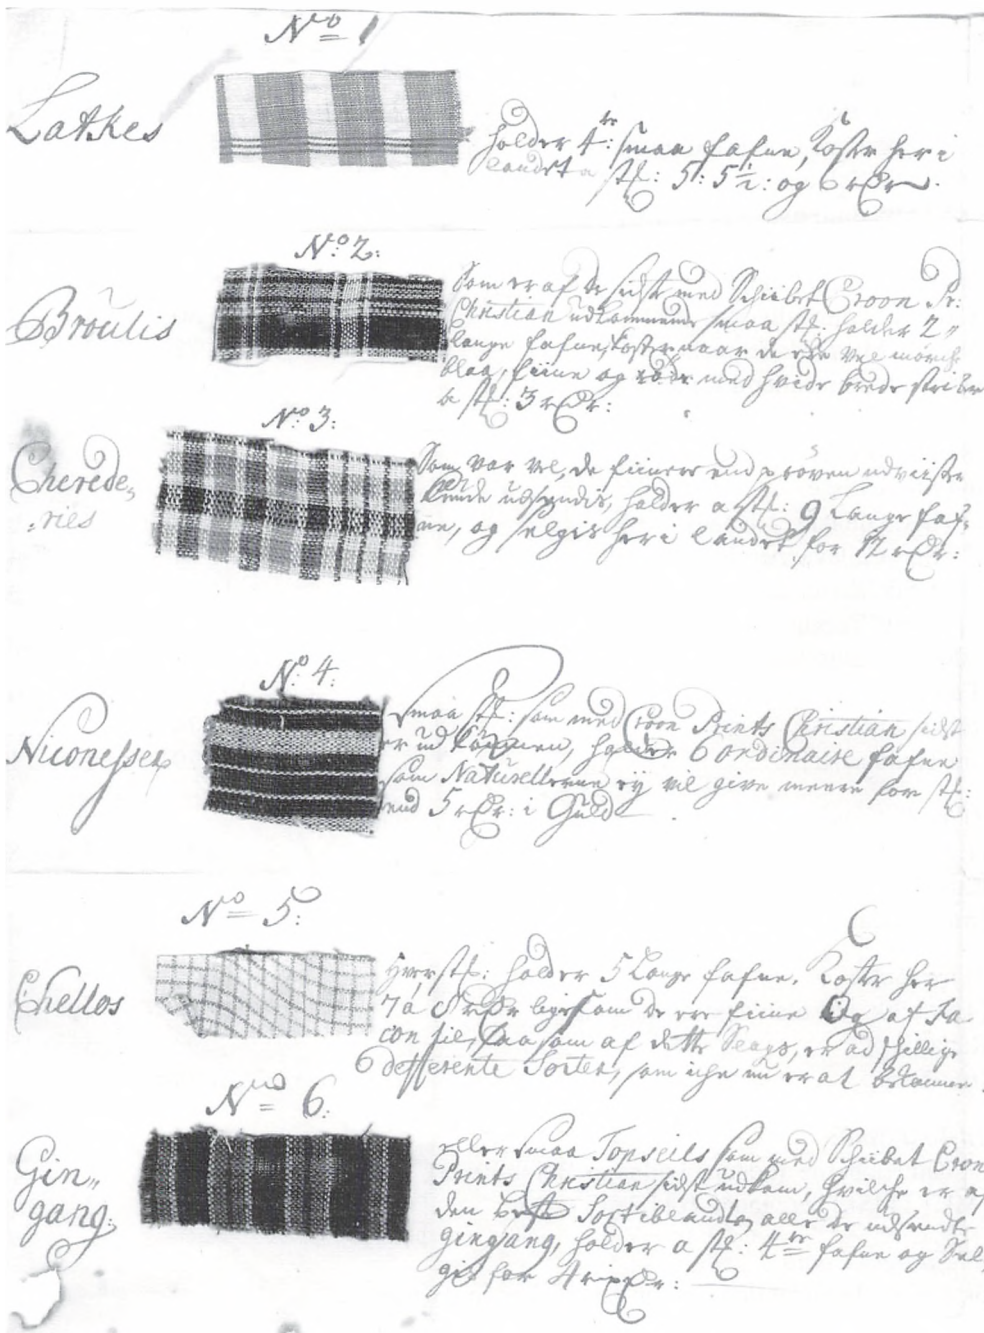 No 1
Latkes
holder 4re: smaa fafne, koster her i
landet a stk: 5: 5½: og 6 rdr.
No: 2:
Broulis
Som er af de sidst med Schibet Croon Pr:
Christian udkommende smaa stk: holder 2
lange fafne, koster naar de ere vel mörch
blaa, fiine og med hvide brede striber
a stk: 3 rdr:
No 3:
Cherede,
,riis
Som var vel, de fiinere end pröven udviiser
udsendis, holder a stk: 9 Lange faf,
ne, og selgis her i landet for 12 rdr:
No: 4:
Niconesser
Smaa stk: som med Croon Prints Christian sidst
er udkommen, holder 6 ordinaire fafne
som Naturellerne ej vil give meere for stk:
end 5 rdr: i Guld
No 5:
Chellos
Hver stk: holder 5 Lange fafne. Koster her
7 a 8 rdr ligesom de ere fiine Og af Fa
con til, saasom af dette Slags, er adskillige
differente Sorter, som iche nu er at bekomme.
No 6.
Gin,,
gang,
eller smaa Topseils som med Schibet Cron
Prints Christian sidst udkom, hvilche er af
den beste Sort iblandt alle de udsendte
gingang, holder a stk: 4re fafne og Sel,
gis for 4 rdr: